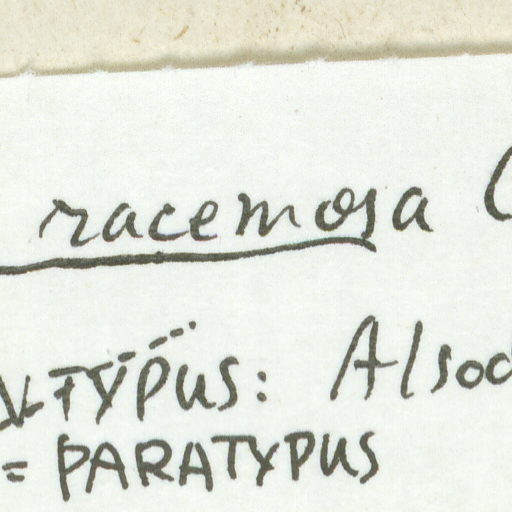 racemosa (
TYPUS: Alsod
= PARATYPUS